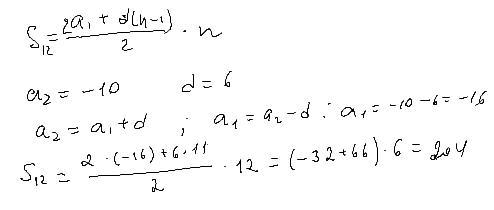 S₁₂ = (2a₁ + d(n-1))/2 · n
a₂ = -10 d = 6
a₂ = a₁ + d ; a₁ = a₂ - d ; a₁ = -10 - 6 = -16
S₁₂ = (2 · (-16) + 6 · 11)/2 · 12 = (-32 + 66) · 6 = 204